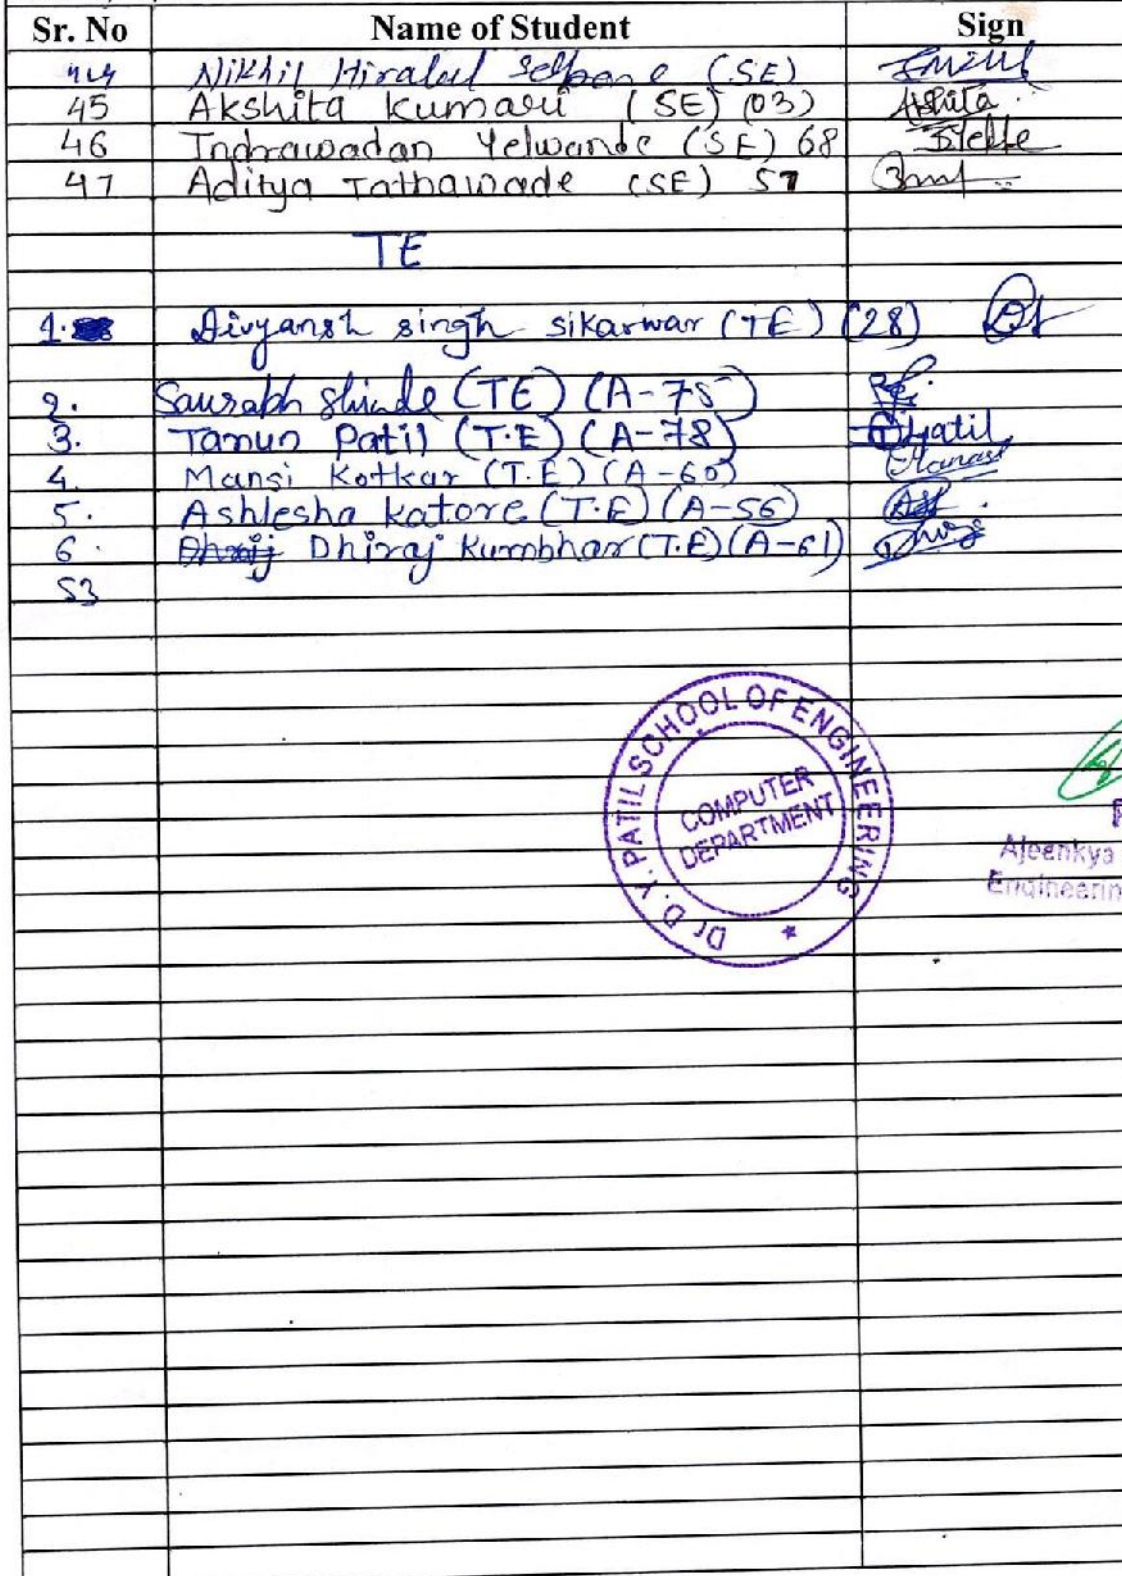 Sr. No Name of Student Sign
44 Nikhil Hiralal (SE)
45 Akshita Kumari (SE) (03) Akshita
46 Indrawadan Yelwande (SE) 68
47 Aditya Tathawade (SE) 57
TE
1. Divyansh singh sikarwar (TE) (28)
2. Saurabh Shinde (TE) (A-75)
3. Tanun Patil (T.E) (A-78) Patil
4. Mansi Kotkar (T.E) (A-60)
5. Ashlesha Katore (T.E) (A-56)
6. Dhiraj Kumbhar (T.E) (A-61)
53
Dr. D. Y. PATIL SCHOOL OF ENGINEERING
COMPUTER
DEPARTMENT
Ajeenkya
Engineerin